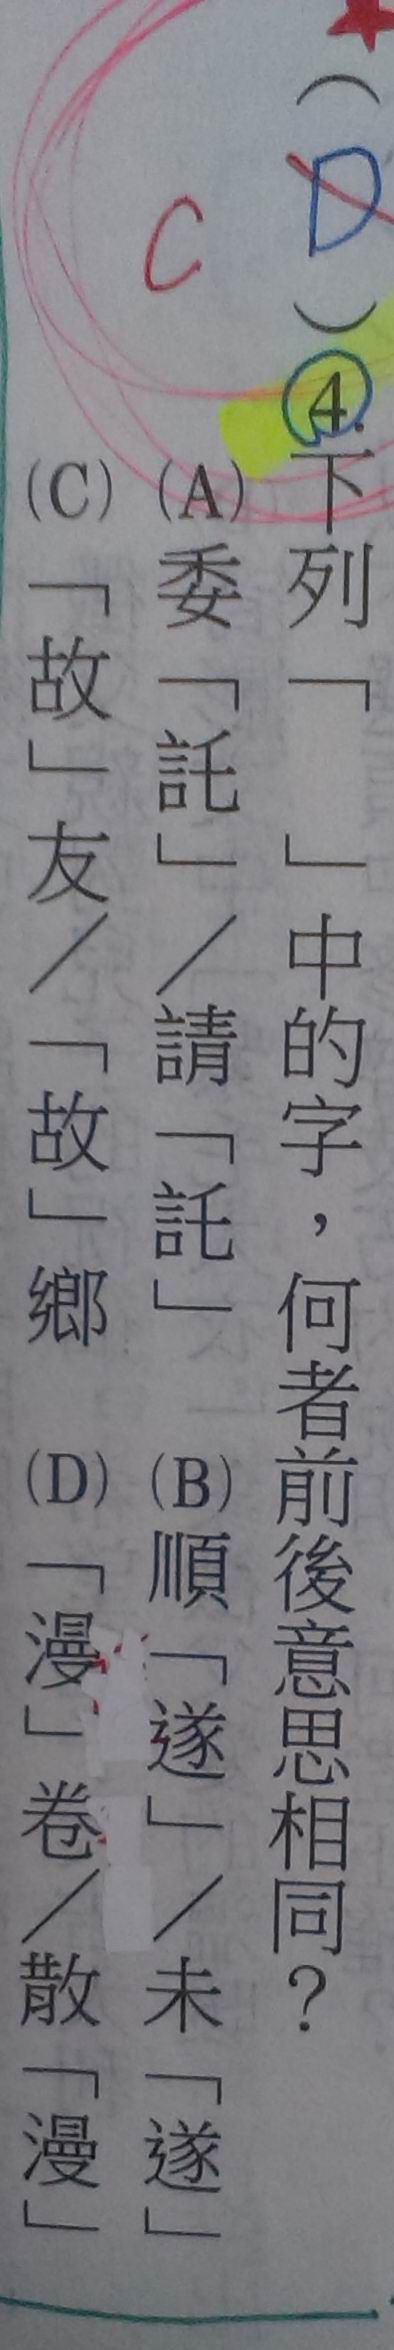 （D）4.下列「　」中的字，何者前後意思相同？
C
(A)委「託」／請「託」　(B)順「遂」／未「遂」
(C)「故」友／「故」鄉　(D)「漫」卷／散「漫」